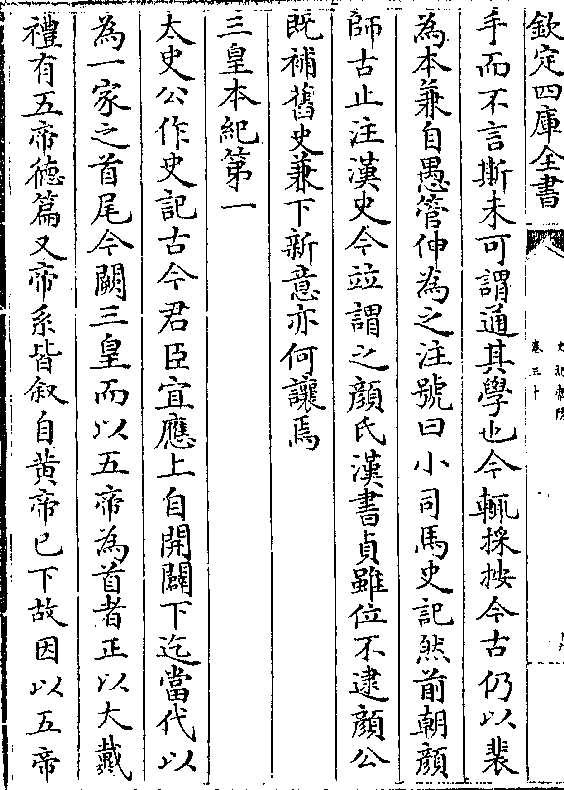 欽定四庫全書
卷三十
手而不言斯未可謂通其學也今輒採按今古仍以裴
為本兼自愚管伸為之注號曰小司馬史記然前朝顔
師古止注漢史今竝謂之顔氏漢書貞雖位不逮顔公
既補舊史兼下新意亦何讓焉
三皇本紀第一
太史公作史記古今君臣宜應上自開闢下迄當代以
為一家之首尾今闕三皇而以五帝為首者正以大戴
禮有五帝徳篇又帝系皆叙自黄帝已下故因以五帝